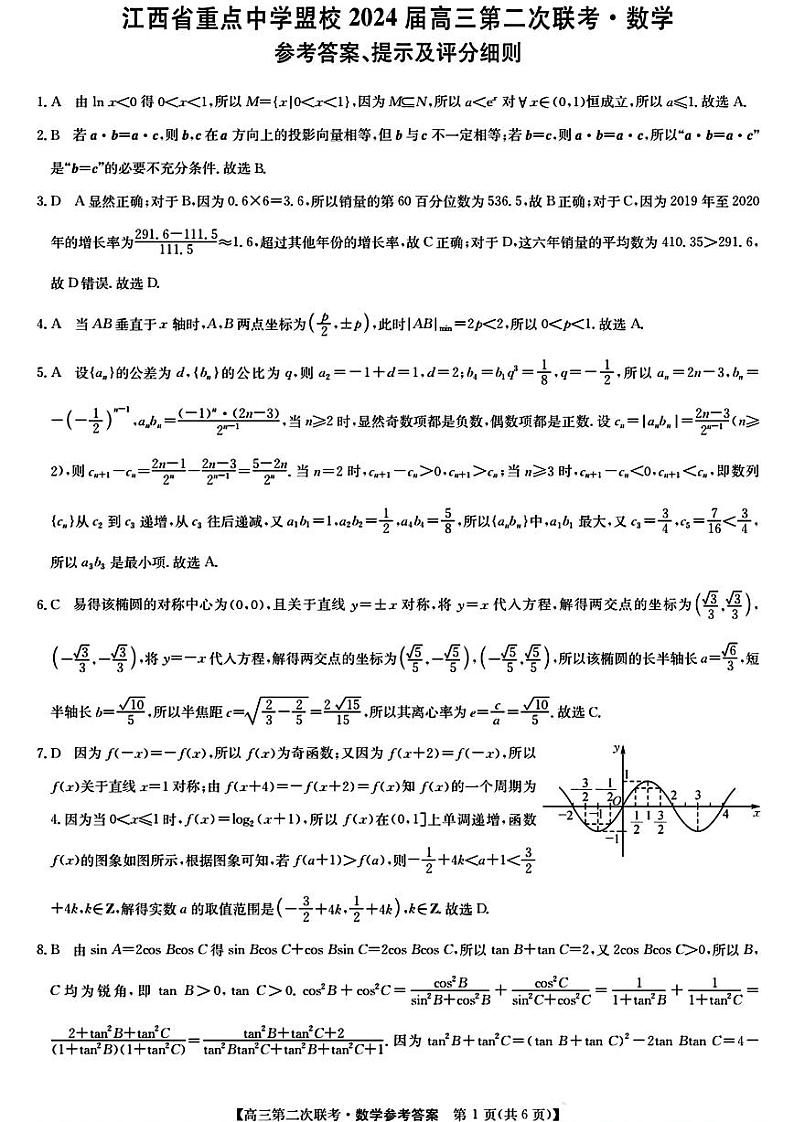 江西省重点中学盟校 2024 届高三第二次联考·数学
参考答案、提示及评分细则
1. A 由 ln x<0 得 0<x<1,所以 M={x|0<x<1},因为 M⊆N,所以 a<eˣ 对 ∀x∈(0,1)恒成立,所以 a≤1. 故选 A.
2. B 若 a·b=a·c,则 b,c 在 a 方向上的投影向量相等,但 b 与 c 不一定相等;若 b=c,则 a·b=a·c,所以“a·b=a·c”
是“b=c”的必要不充分条件. 故选 B.
3. D A 显然正确;对于 B,因为 0.6×6=3.6,所以销量的第 60 百分位数为 536.5,故 B 正确;对于 C,因为 2019 年至 2020
年的增长率为 (291.6−111.5)/111.5≈1.6,超过其他年份的增长率,故 C 正确;对于 D,这六年销量的平均数为 410.35>291.6,
故 D 错误. 故选 D.
4. A 当 AB 垂直于 x 轴时,A,B 两点坐标为(p/2,±p),此时|AB|min=2p<2,所以 0<p<1. 故选 A.
5. A 设{aₙ}的公差为 d,{bₙ}的公比为 q,则 a₂=−1+d=1,d=2;b₄=b₁q³=1/8,q=−1/2,所以 aₙ=2n−3,bₙ=
−(−1/2)ⁿ⁻¹,aₙbₙ=(−1)ⁿ·(2n−3)/2ⁿ⁻¹,当 n≥2 时,显然奇数项都是负数,偶数项都是正数. 设 cₙ=|aₙbₙ|=(2n−3)/2ⁿ⁻¹(n≥
2),则 cₙ₊₁−cₙ=(2n−1)/2ⁿ−(2n−3)/2ⁿ⁻¹=(5−2n)/2ⁿ. 当 n=2 时,cₙ₊₁−cₙ>0,cₙ₊₁>cₙ;当 n≥3 时,cₙ₊₁−cₙ<0,cₙ₊₁<cₙ,即数列
{cₙ}从 c₂ 到 c₃ 递增,从 c₃ 往后递减,又 a₁b₁=1,a₂b₂=1/2,a₄b₄=5/8,所以{aₙbₙ}中,a₁b₁ 最大,又 c₃=3/4,c₅=7/16<3/4,
所以 a₃b₃ 是最小项. 故选 A.
6. C 易得该椭圆的对称中心为(0,0),且关于直线 y=±x 对称,将 y=x 代入方程,解得两交点的坐标为(√3/3,√3/3),
(−√3/3,−√3/3),将 y=−x 代入方程,解得两交点的坐标为(√5/5,−√5/5),(−√5/5,√5/5),所以该椭圆的长半轴长 a=√6/3,短
半轴长 b=√10/5,所以半焦距 c=√(2/3−2/5)=2√15/15,所以其离心率为 e=c/a=√10/5. 故选 C.
7. D 因为 f(−x)=−f(x),所以 f(x)为奇函数;又因为 f(x+2)=f(−x),所以
f(x)关于直线 x=1 对称;由 f(x+4)=−f(x+2)=f(x)知 f(x)的一个周期为
4. 因为当 0<x≤1 时,f(x)=log₂(x+1),所以 f(x)在(0,1]上单调递增,函数
f(x)的图象如图所示,根据图象可知,若 f(a+1)>f(a),则−1/2+4k<a+1<3/2
+4k,k∈Z,解得实数 a 的取值范围是(−3/2+4k,1/2+4k),k∈Z. 故选 D.
y
1
−3/2 −1/2 O 2 3
−2 −1 1/2 1 3/2 4 x
−1
8. B 由 sin A=2cos Bcos C 得 sin Bcos C+cos Bsin C=2cos Bcos C,所以 tan B+tan C=2,又 2cos Bcos C>0,所以 B,
C 均为锐角,即 tan B>0,tan C>0. cos²B+cos²C=cos²B/(sin²B+cos²B)+cos²C/(sin²C+cos²C)=1/(1+tan²B)+1/(1+tan²C)=
(2+tan²B+tan²C)/((1+tan²B)(1+tan²C))=(tan²B+tan²C+2)/(tan²Btan²C+tan²B+tan²C+1). 因为 tan²B+tan²C=(tan B+tan C)²−2tan Btan C=4−
【高三第二次联考·数学参考答案 第 1 页(共 6 页)】